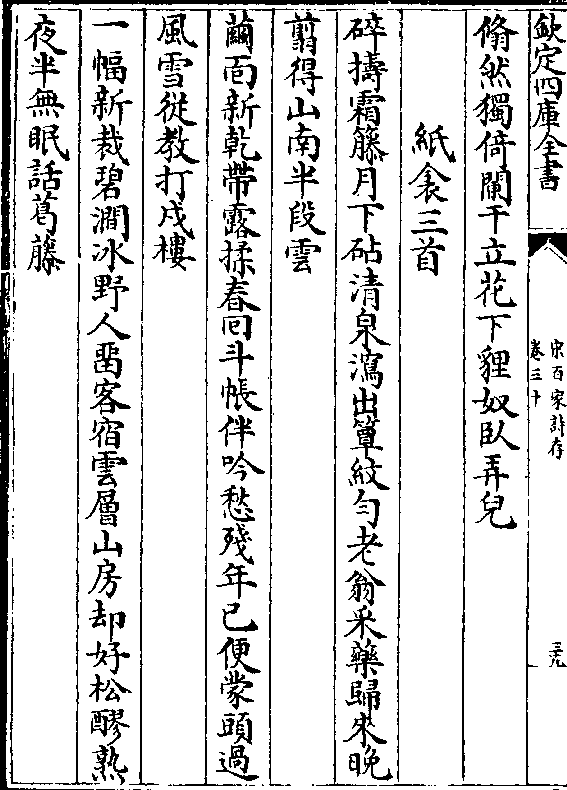 欽定四庫全書
宋百家詩存
卷三十
三九
翛然獨倚闌干立花下貍奴臥弄兒
紙衾三首
碎擣霜籐月下砧清泉瀉出簟紋勻老翁采藥歸來晚
翦得山南半段雲
繭靣新乾帶露揉春囘斗帳伴吟愁殘年已便蒙頭過
風雪從教打戍樓
一幅新裁碧澗冰野人畱客宿雲層山房却好松醪熟
夜半無眠話葛藤